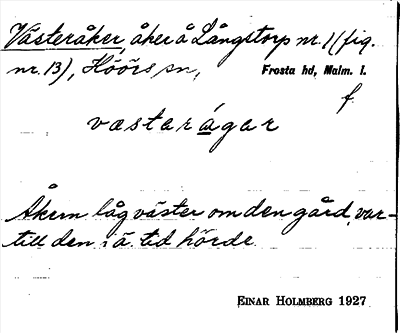 Västeråker, åker å Långstorp nr. 1 (fig.
nr. 13), Höörs sn, Frosta hd, Malm. l.
f.
væstarágar
Åkern låg väster om den gård, var-
till den i ä. tid hörde.
EINAR HOLMBERG 1927